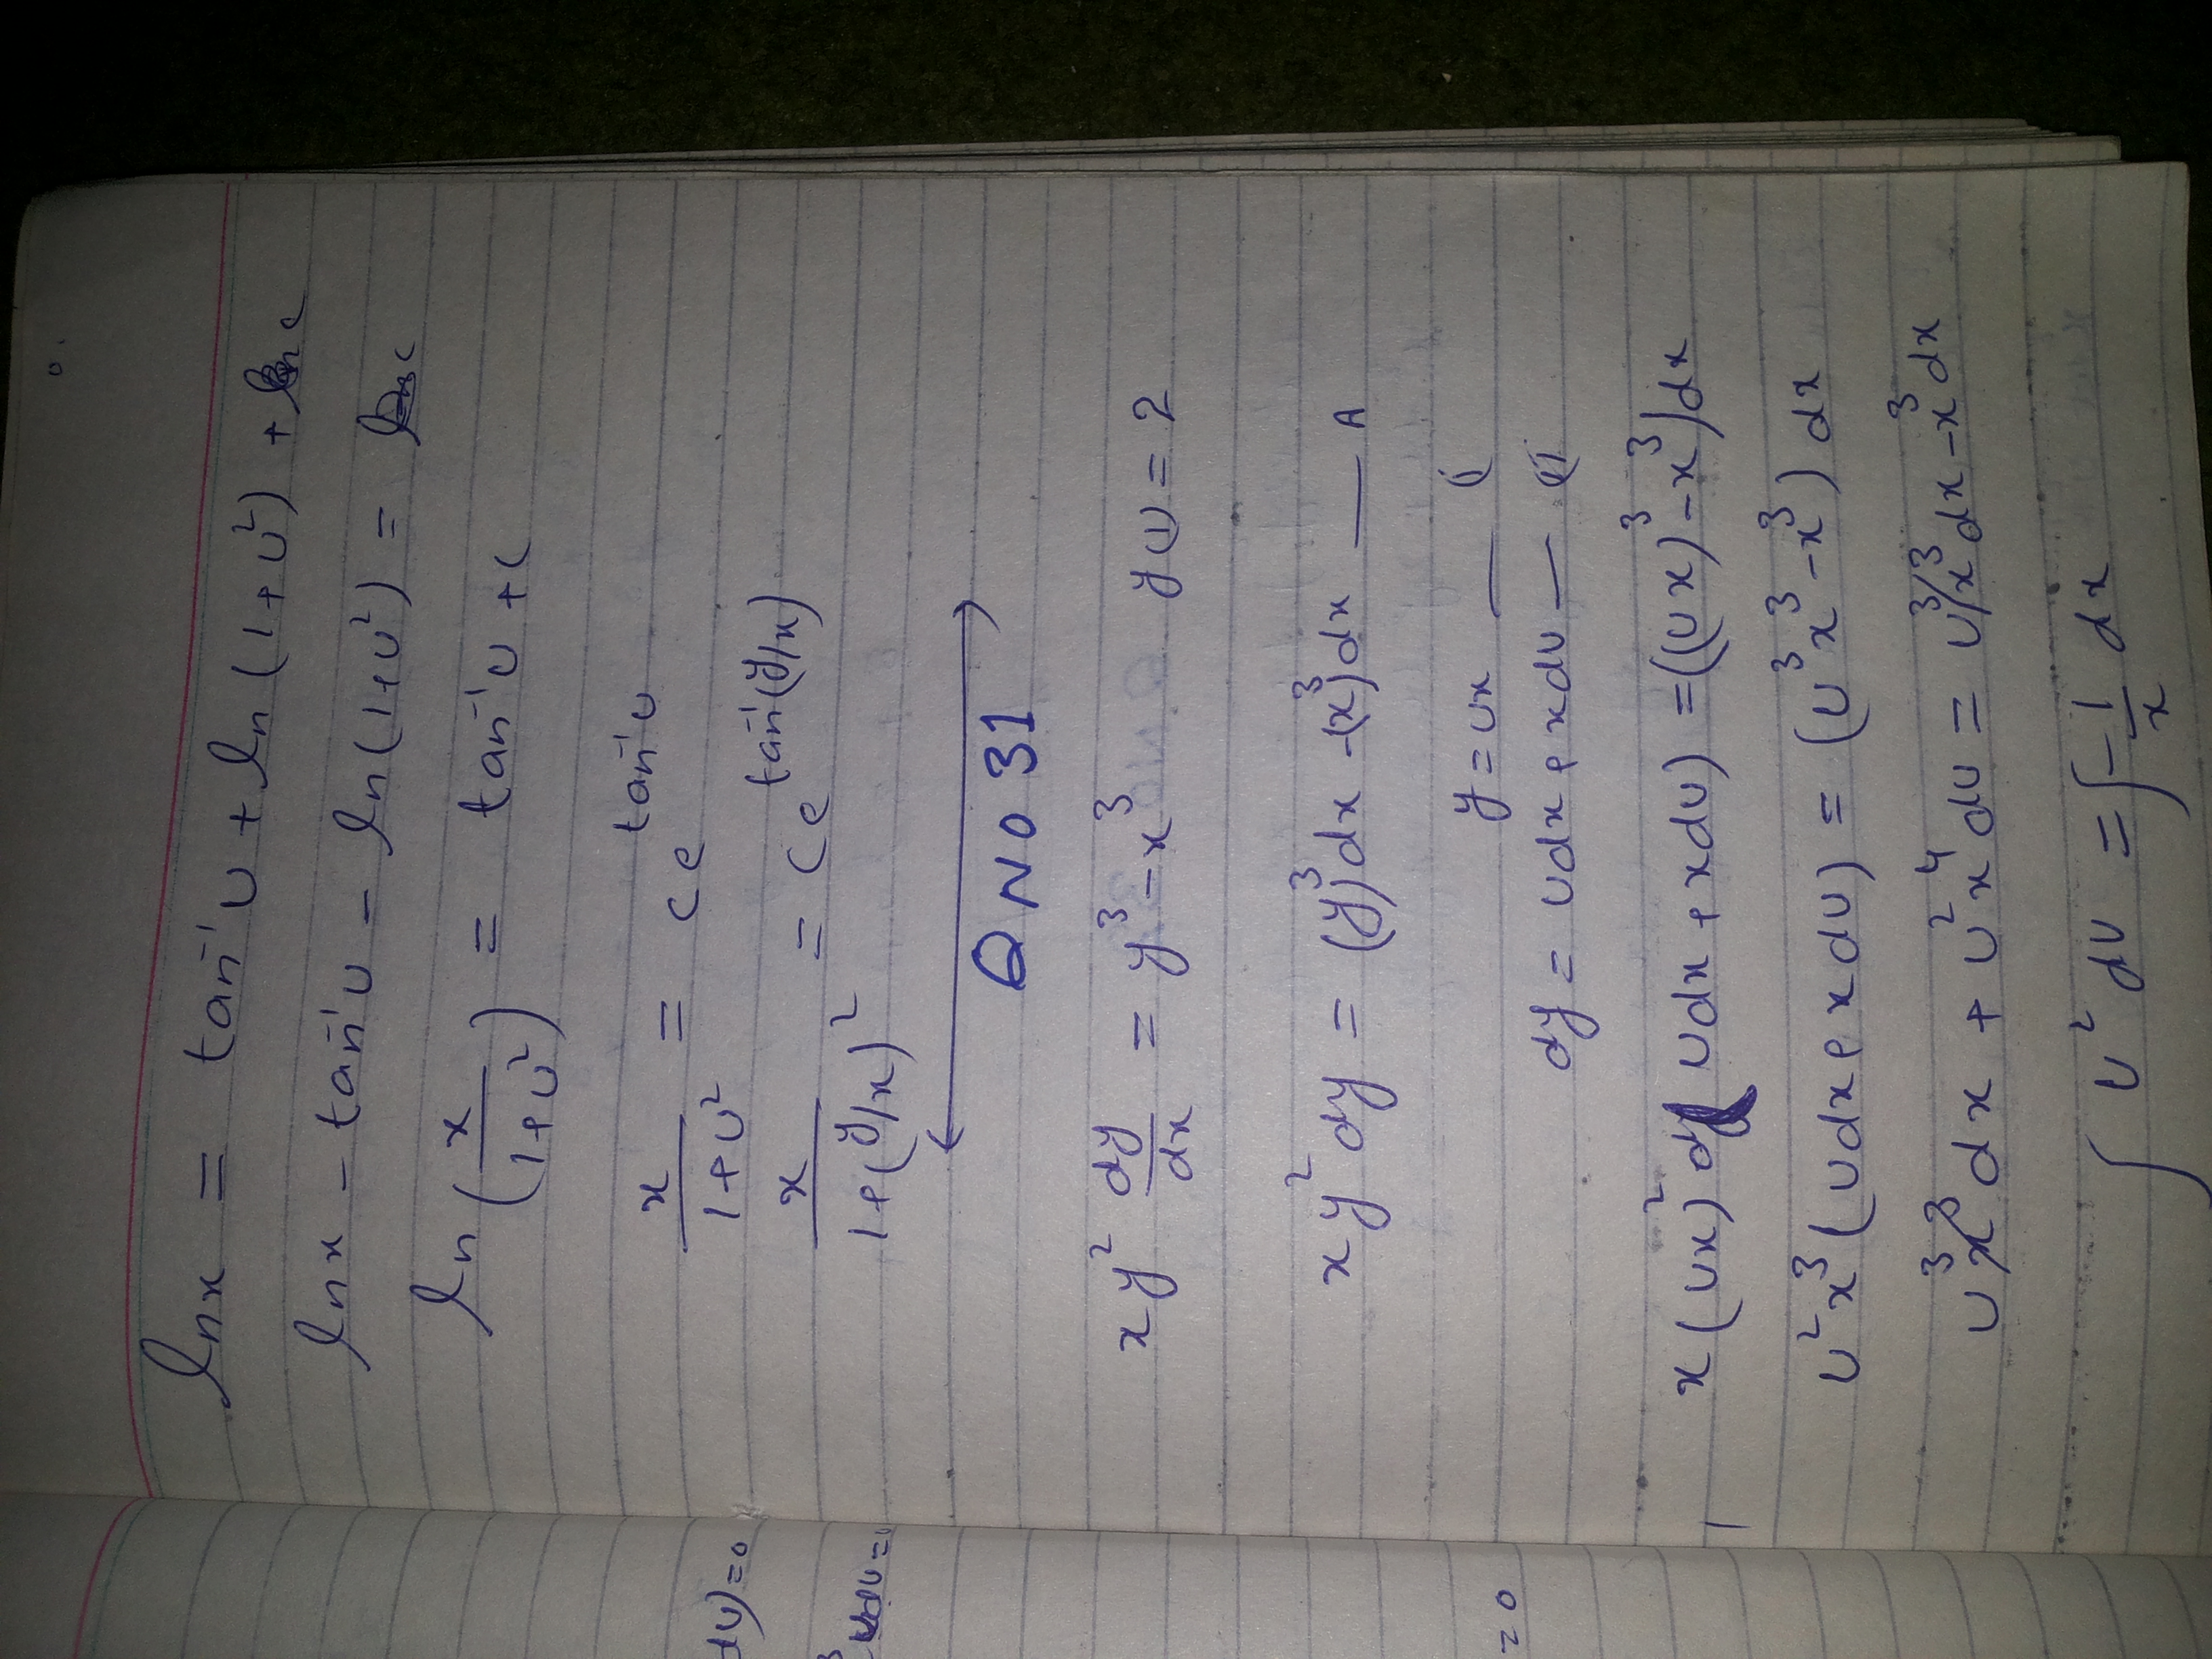 ln x = tan⁻¹ u + ln (1 + u²) + c
ln x - tan⁻¹ u - ln (1+u²) = c
ln (x / 1+u²) = tan⁻¹ u + c
x / 1+u² = c e^tan⁻¹ u
du)=0
x / 1+(y/x)² = c e^tan⁻¹(y/x)
Q NO 31
x y² dy/dx = y³ - x³ y(1) = 2
x y² dy = (y)³ dx - (x)³ dx — A
y = ux — (i
= 0
dy = u dx + x du — (ii
x (ux)² (u dx + x du) = ((ux)³ - x³) dx
u² x³ (u dx + x du) = (u³ x³ - x³) dx
u³ x³ dx + u² x⁴ du = u³ x³ dx - x³ dx
∫ u² du = ∫ -1/x dx